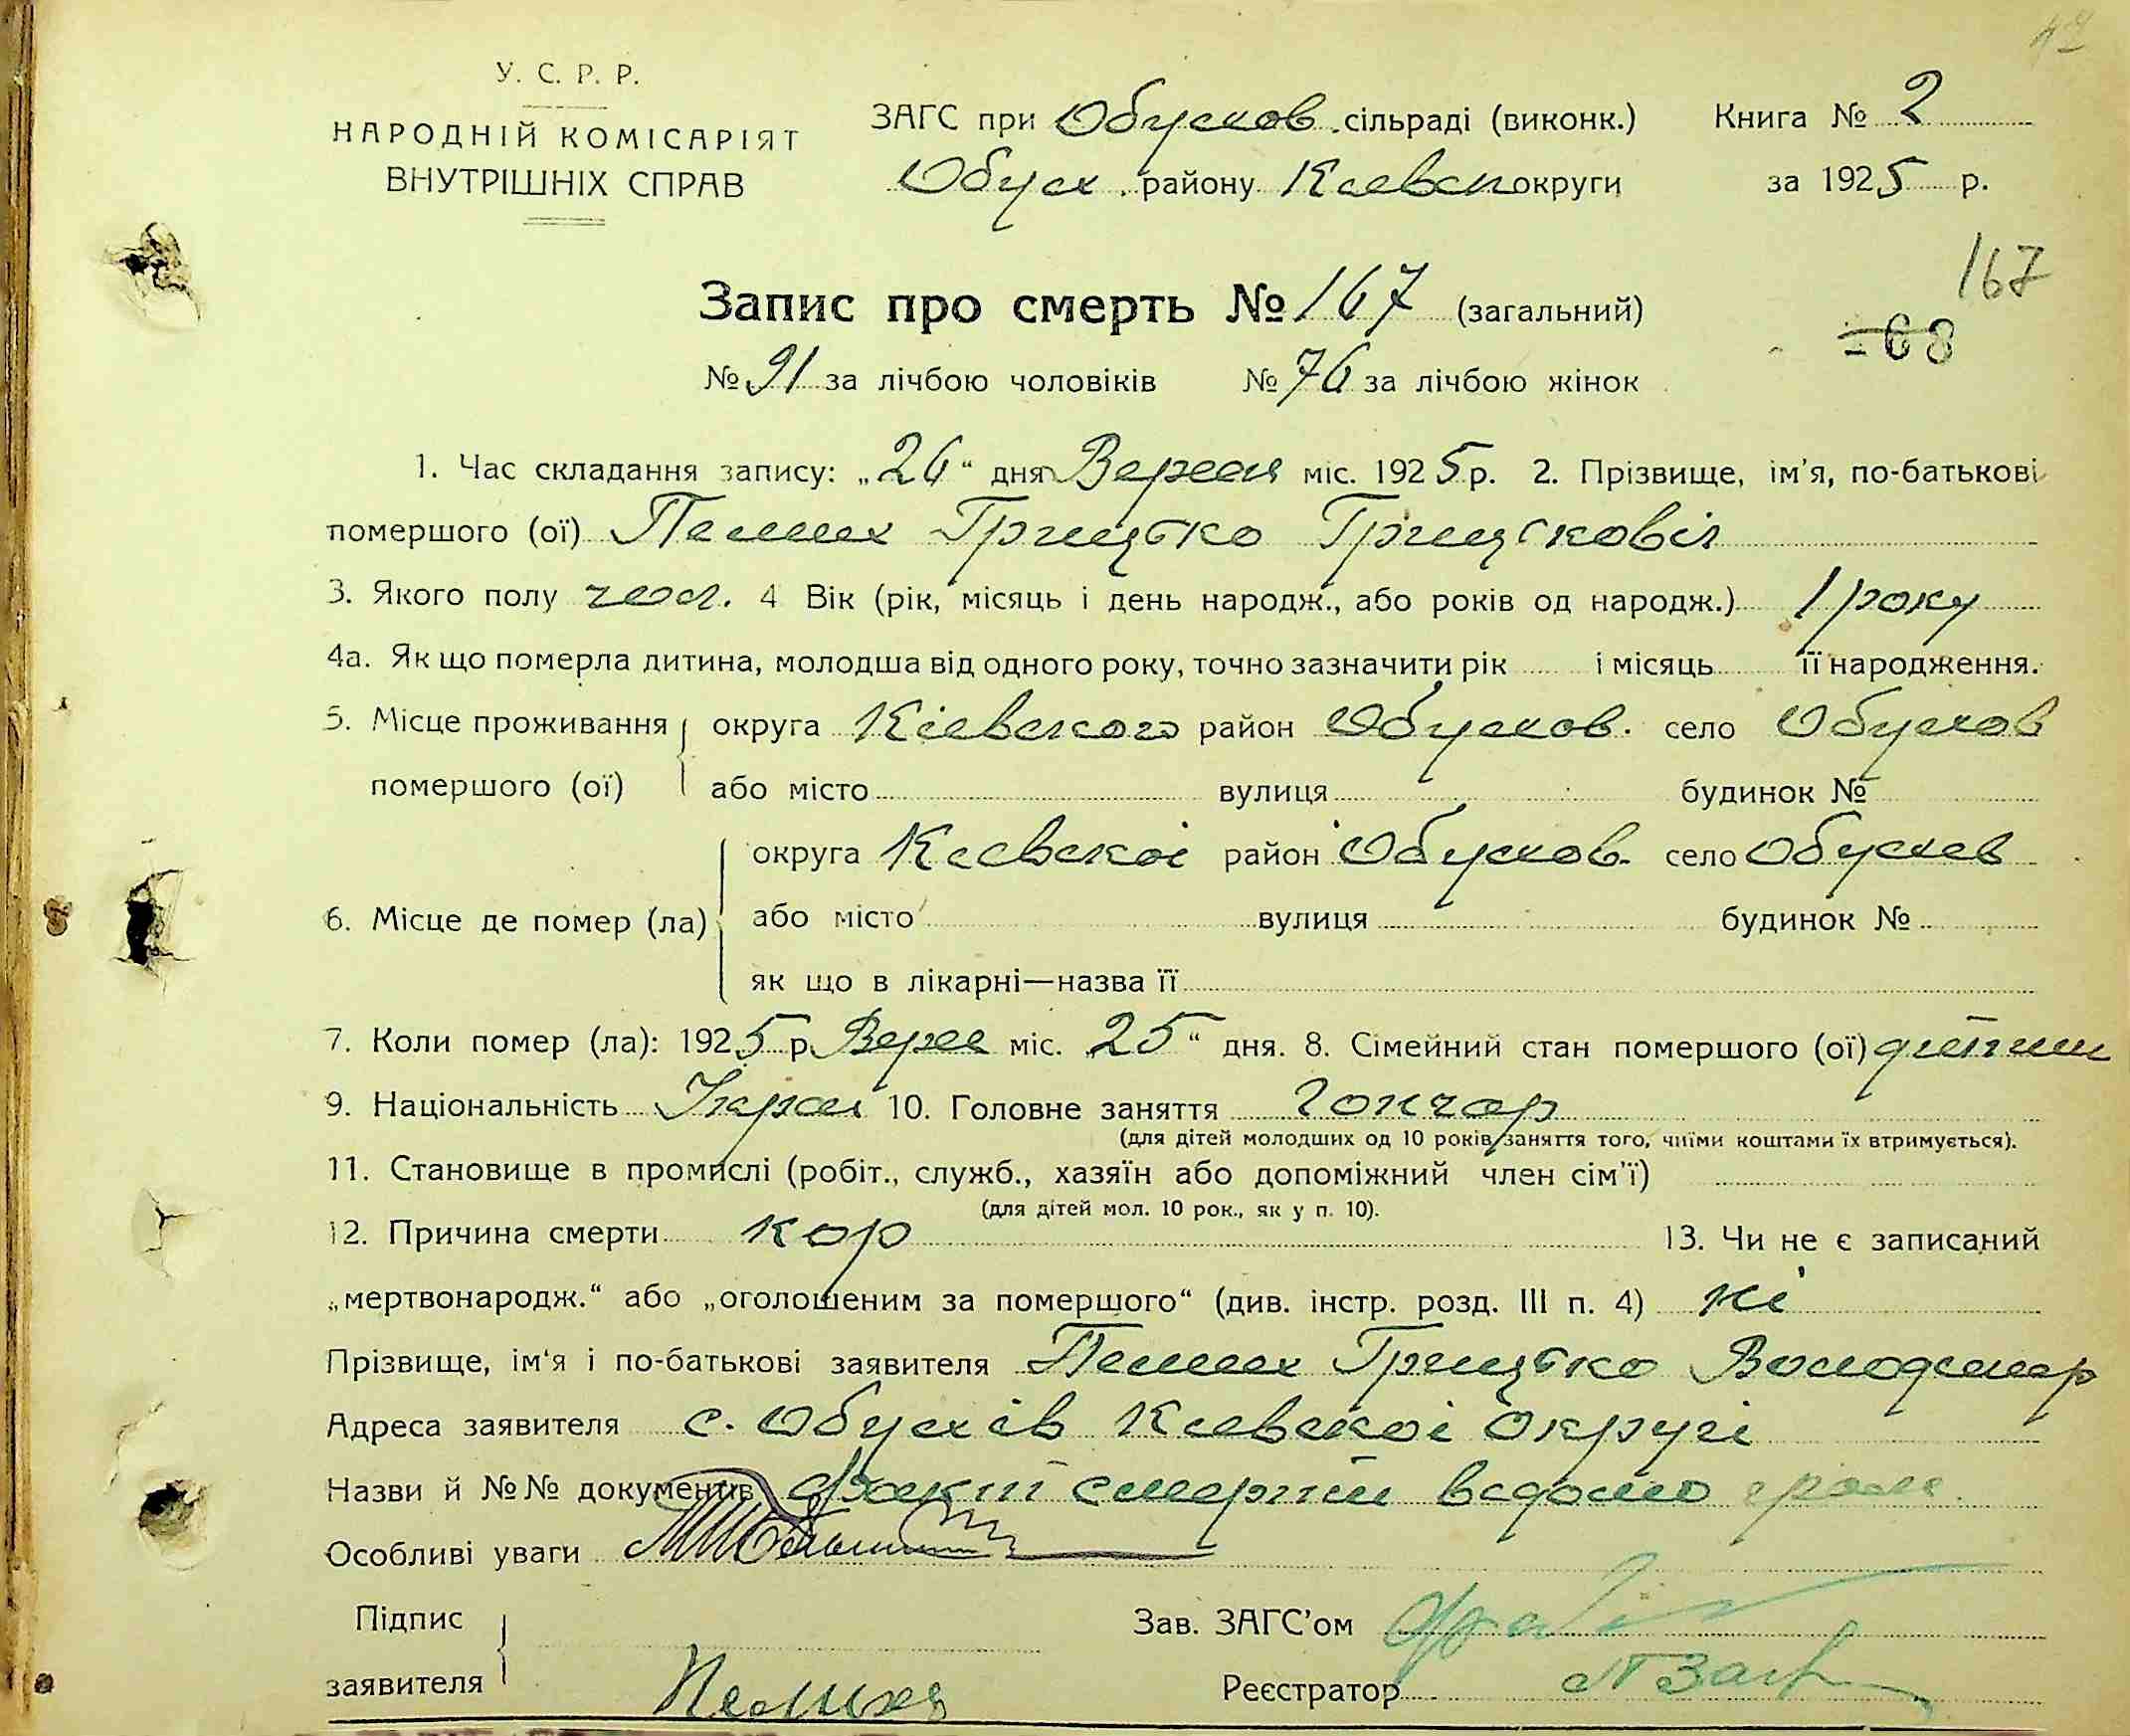 У. С. Р. Р.
НАРОДНІЙ КОМІСАРІЯТ
ВНУТРІШНІХ СПРАВ
ЗАГС при Обухов. сільраді (виконк.)
Обух. району Киевск округи
Книга № 2
за 1925 р.
167
68
Запис про смерть № 167 (загальний)
№ 91 за лічбою чоловіків № 76 за лічбою жінок
1. Час складання запису: „26“ дня Вересня міс. 1925 р. 2. Прізвище, ім'я, по-батькові
помершого (ої) Грицько Грицьковіч
3. Якого полу чол. 4 Вік (рік, місяць і день народж., або років од народж.) 1 року
4а. Як що померла дитина, молодша від одного року, точно зазначити рік і місяць її народження.
5. Місце проживання округа Кіевского район Обухов. село Обухов
помершого (ої) або місто вулиця будинок №
округа Киевскоі район Обухов. село Обухов
6. Місце де помер (ла) або місто вулиця будинок №
як що в лікарні—назва її
7. Коли помер (ла): 1925 р. Вере міс. „25“ дня. 8. Сімейний стан помершого (ої) дитина
9. Національність Украи 10. Головне заняття Гончар
(для дітей молодших од 10 років, заняття того, чиїми коштами їх втримується).
11. Становище в промислі (робіт., служб., хазяїн або допоміжний член сім'ї)
(для дітей мол. 10 рок., як у п. 10).
12. Причина смерти кор 13. Чи не є записаний
„мертвонародж.“ або „оголошеним за помершого“ (див. інстр. розд. III п. 4) ні
Прізвище, ім'я і по-батькові заявителя Грицько Володимар
Адреса заявителя с. Обухів Киевскоі Округі
Назви й №№ документів факт смерти ведомо
Особливі уваги
Підпис
заявителя
Зав. ЗАГС'ом
Реєстратор